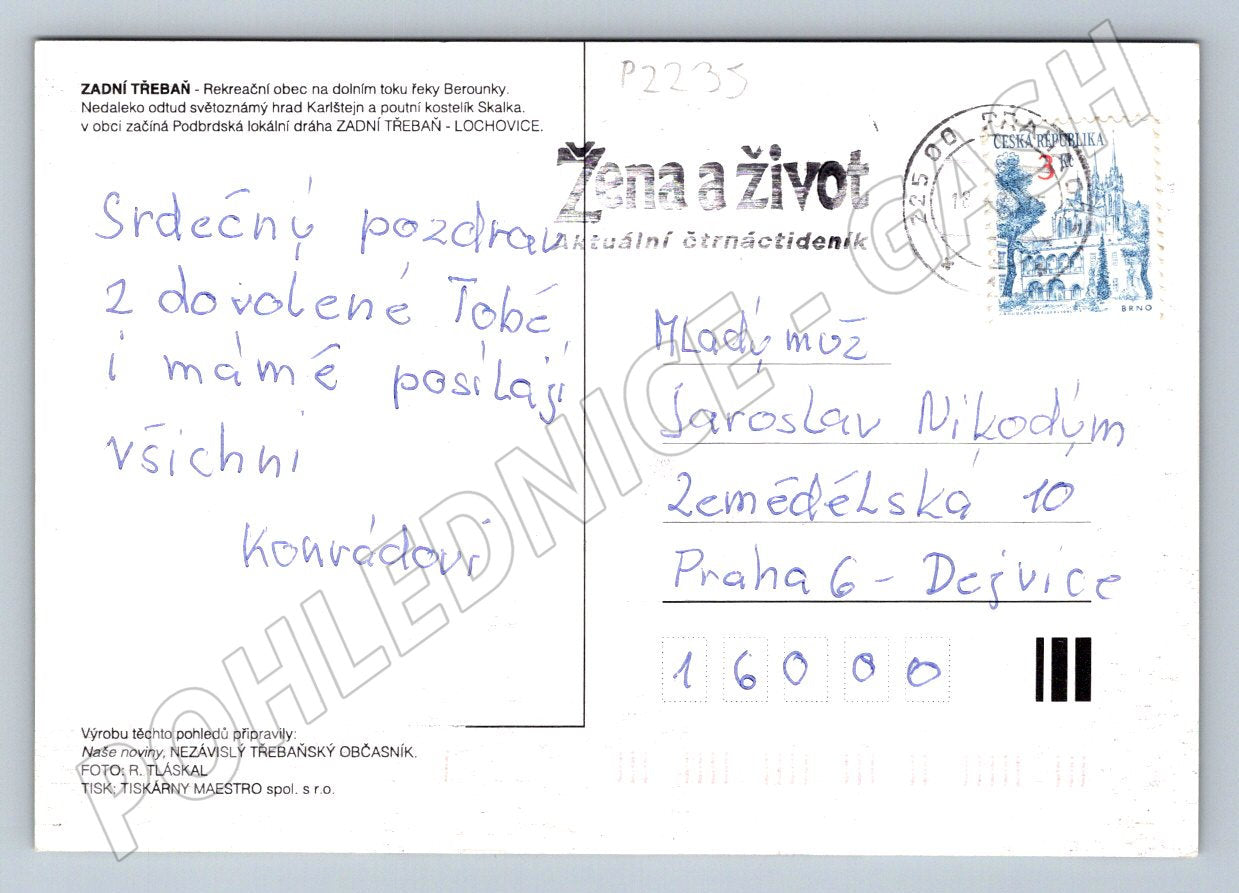 ZADNÍ TŘEBAŇ - Rekreační obec na dolním toku řeky Berounky.
Nedaleko odtud světoznámý hrad Karlštejn a poutní kostelík Skalka.
v obci začíná Podbrdská lokální dráha ZADNÍ TŘEBAŇ - LOCHOVICE.
Srdečný pozdrav
z dovolené Tobě
i mámě posílají
všichni
Konrádovi
Výrobu těchto pohledů připravily:
Naše noviny, NEZÁVISLÝ TŘEBAŇSKÝ OBČASNÍK.
FOTO: R. TLÁSKAL
TISK: TISKÁRNY MAESTRO spol. s r.o.
P2235
Žena a život
Aktuální čtrnáctideník
225 00 PRAHA
ČESKÁ REPUBLIKA
3 Kč
BRNO
Mladý muž
Jaroslav Nikodým
Zemědělská 10
Praha 6 - Dejvice
16000
POHLEDNICE - GASH